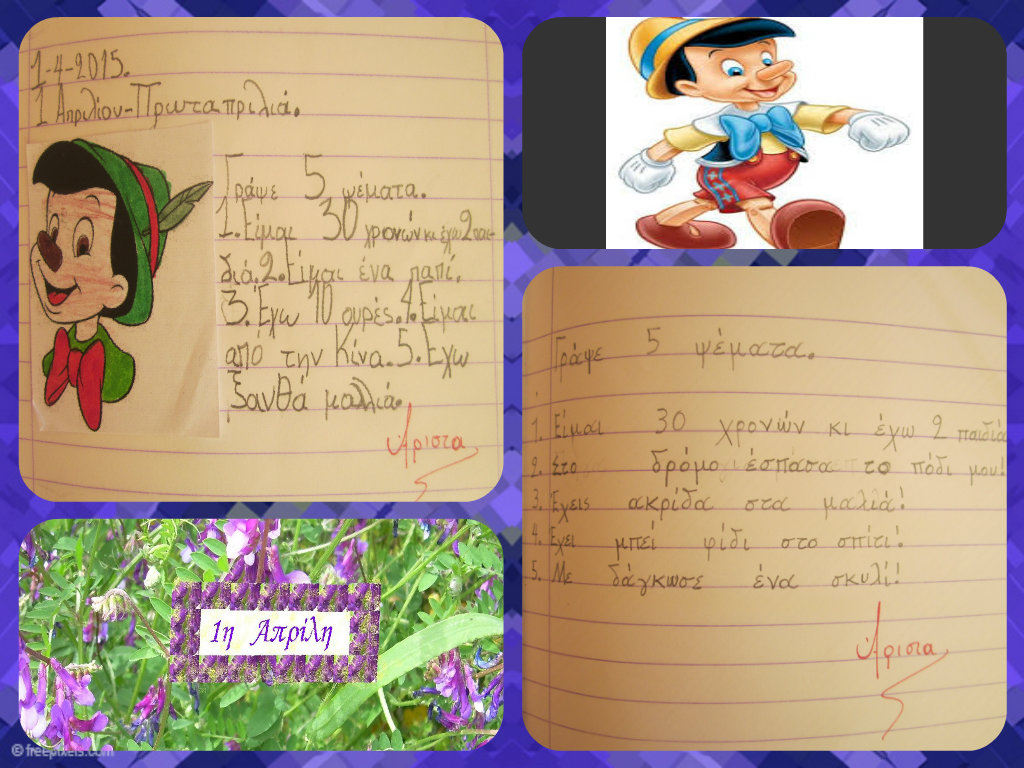 1-4-2015.
1 Απριλίου-Πρωταπριλιά.
Γράψε 5 ψέματα.
1. Είμαι 30 χρονών κι έχω 2 παι-
διά. 2. Είμαι ένα παπί.
3. Έχω 10 ουρές. 4. Είμαι
από την Κίνα. 5. Έχω
ξανθά μαλλιά.
Άριστα
Γράψε 5 ψέματα.
1. Είμαι 30 χρονών κι έχω 2 παιδιά
2. Στο δρόμο έσπασα το πόδι μου!
3. Έχεις ακρίδα στα μαλιά!
4. Έχει μπεί φίδι στο σπίτι!
5. Με δάγκωσε ένα σκυλί!
Άριστα
1η Απρίλη
© freepixels.com